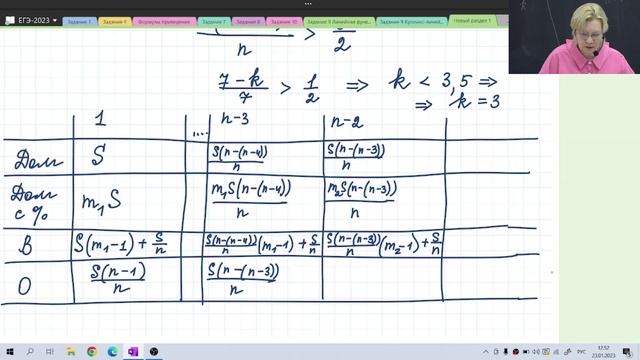 ЕГЭ-2023
Задание 1
Задание 4
Формулы приведения
Задание 7
Задание 8
Задание 10
Задание 9 Линейная функ...
Задание 9 Кусочно-линей...
Новый раздел 1
n > 2
(7-k)/7 > 1/2 ⇒ k < 3,5 ⇒
⇒ k = 3
1 .... n-3 n-2
Долг S S(n-(n-4))/n S(n-(n-3))/n
Долг с % m₁S m₁S(n-(n-4))/n m₂S(n-(n-3))/n
В S(m₁-1) + S/n S(n-(n-4))/n (m₁-1) + S/n S(n-(n-3))/n (m₂-1) + S/n
О S(n-1)/n S(n-(n-3))/n
РУС
12:52
23.01.2023